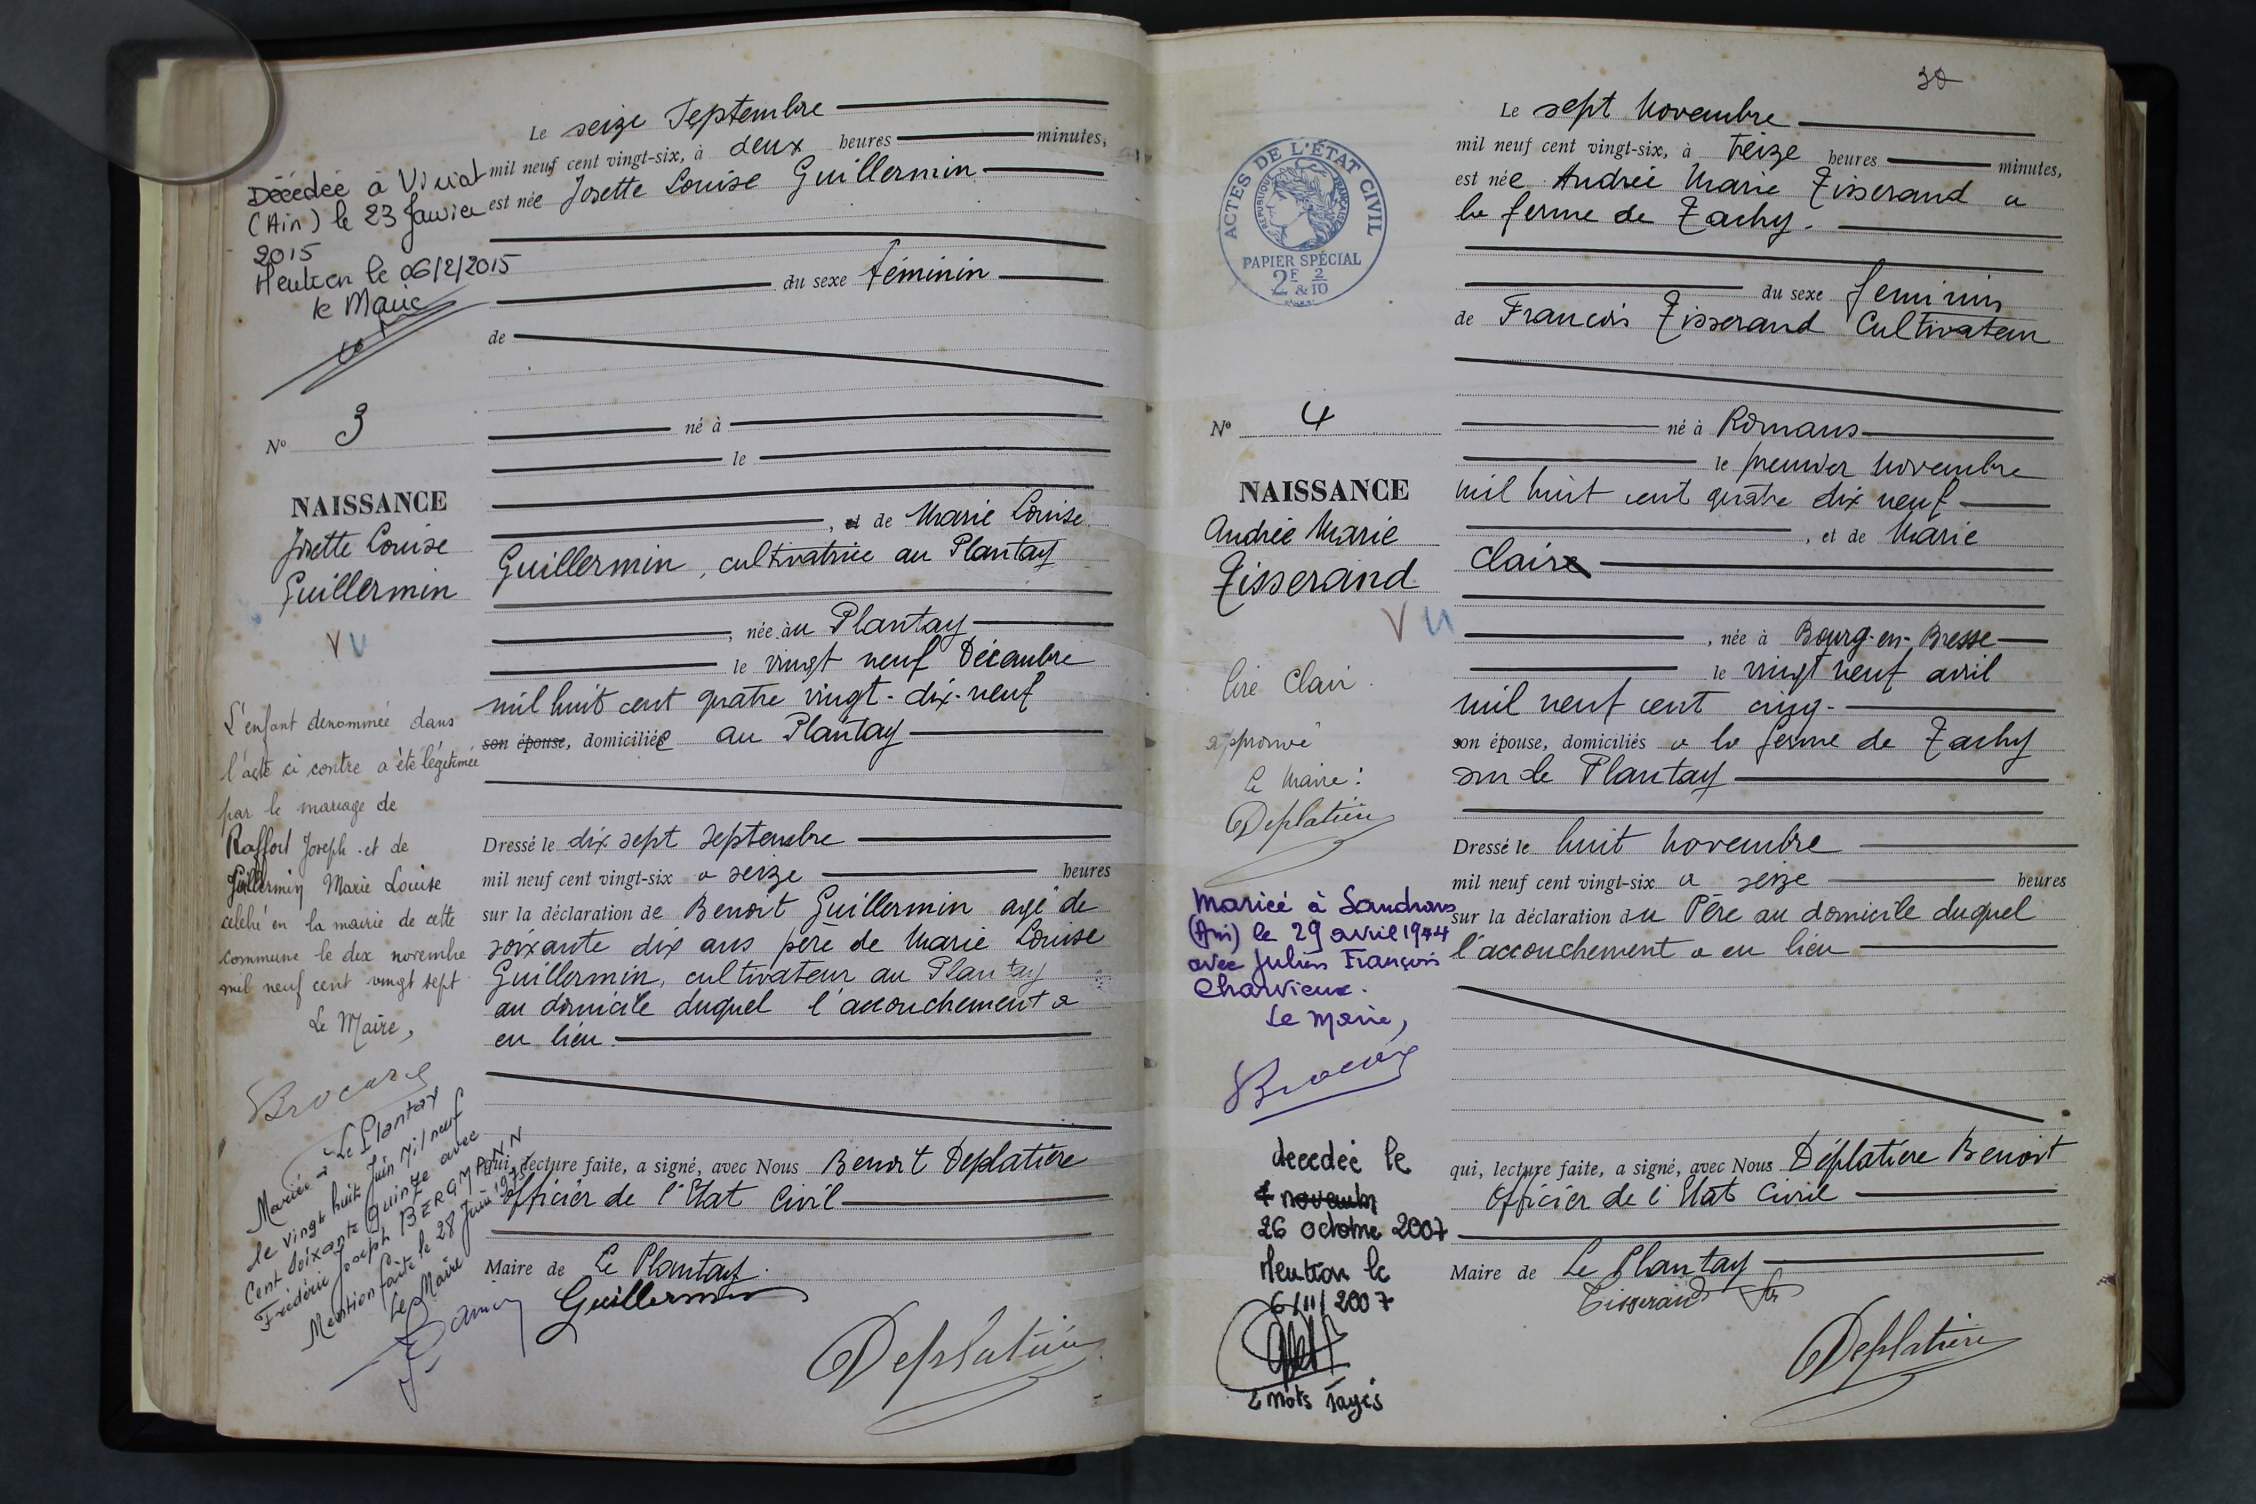 Le seize Septembre
mil neuf cent vingt-six, à deux heures minutes,
est née Josette Louise Guillermin
du sexe féminin
de
né à
le
, et de Marie Louise
Guillermin, cultivatrice au Plantay
, née au Plantay
le vingt neuf Décembre
mil huit cent quatre vingt-dix-neuf
son épouse, domiciliée au Plantay
Dressé le dix sept septembre
mil neuf cent vingt-six a seize heures
sur la déclaration de Benoit Guillermin agé de
soixante dix ans père de Marie Louise
Guillermin, cultivateur au Plantay
au domicile duquel l'accouchement a
eu lieu
qui, lecture faite, a signé, avec Nous Benoit Deplatière
officier de l'Etat Civil
Maire de Le Plantay
Guillermin
Deplatière
Décédée à Viriat
(Ain) le 23 Janvier
2015
Mention le 06/2/2015
le Maire
N° 3
NAISSANCE
Josette Louise
Guillermin
VU
L'enfant dénommée dans
l'acte ci contre a été légitimée
par le mariage de
Raffort Joseph et de
Guillermin Marie Louise
célébré en la mairie de cette
commune le dix novembre
mil neuf cent vingt sept
Le Maire,
Brocard
Mariée à Le Plantay
le vingt huit Juin Mil neuf
Cent Soixante quinze avec
Frédéric Joseph BERGMANN
Mention faite le 28 Juin 1975
Le Maire
30
Le sept Novembre
mil neuf cent vingt-six, à treize heures minutes,
est née Andrée Marie Tisserand a
la ferme de Zachy.
du sexe feminin
de Francois Tisserand Cultivateur
né à Romans
le premier Novembre
mil huit cent quatre dix neuf
, et de Marie
Claire
, née à Bourg-en-Bresse
le vingt neuf avril
mil neuf cent cinq
son épouse, domiciliés a la ferme de Zachy
sur le Plantay
Dressé le huit Novembre
mil neuf cent vingt-six a seize heures
sur la déclaration du Père au domicile duquel
l'accouchement a eu lieu
qui, lecture faite, a signé, avec Nous Déplatière Benoit
Officier de l'Etat Civil
Maire de Le Plantay
Tisserand
Deplatière
ACTES DE L'ÉTAT CIVIL
RÉPUBLIQUE FRANÇAISE
PAPIER SPÉCIAL
2F & 2/10
N° 4
NAISSANCE
Andrée Marie
Tisserand
VU
lire Clair
approuvé
Le Maire:
Deplatière
Mariée à Sandrans
(Ain) le 29 avril 1944
avec Julien François
Charvieux.
Le Maire,
Brocard
decedée le
4 novembre
26 octobre 2007
Mention le
6/11/2007
2 mots rayés